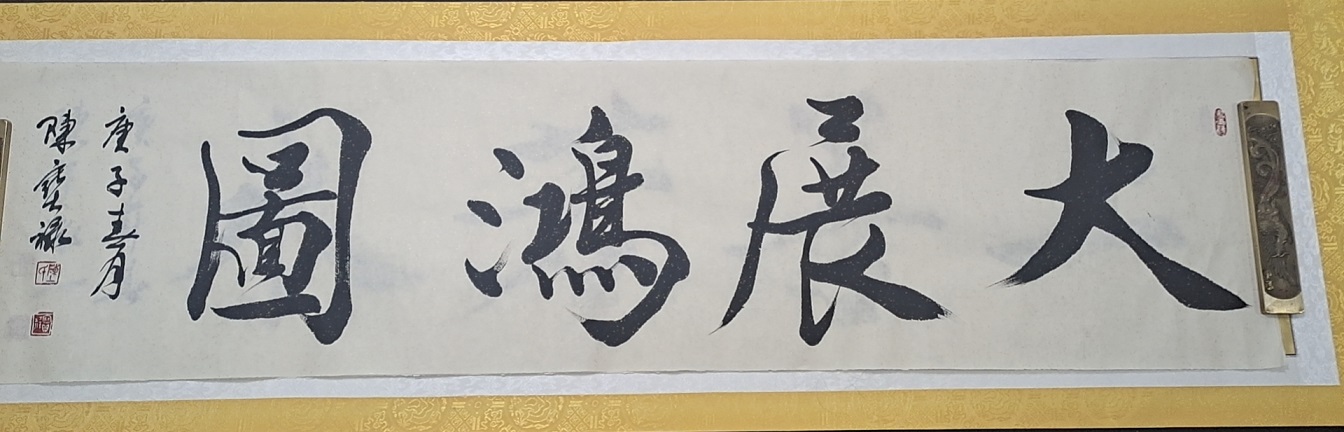 大展鴻圖
庚子春月
陳寶祿